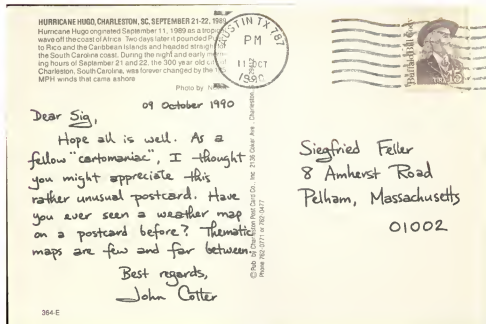 HURRICANE HUGO, CHARLESTON, SC, SEPTEMBER 21-22, 1989
Hurricane Hugo originated September 11, 1989 as a tropical
wave off the coast of Africa. Two days later it pounded
to Rico and the Caribbean Islands and headed straight
the South Carolina coast. During the night and early
ing hours of September 21 and 22, the 300 year old
Charleston, South Carolina, was forever changed by the
MPH winds that came ashore
Photo by
AUSTIN TX 787
PM
11 OCT
1990
Buffalo Bill Cody
USA 15
09 October 1990
Dear Sig,
Hope all is well. As a
fellow "cartomaniac", I thought
you might appreciate this
rather unusual postcard. Have
you ever seen a weather map
on a postcard before? Thematic
maps are few and far between.
Best regards,
John Cotter
364-E
© Pub. by Charleston Post Card Co., Inc. 2136 Ave., Charleston,
Phone 762-0771 or 762-0477
Siegfried Feller
8 Amherst Road
Pelham, Massachusetts
01002